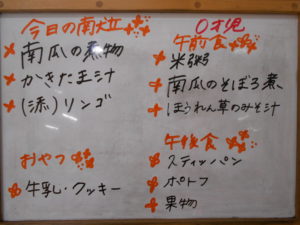 今日の献立
南瓜の煮物
かきた玉汁
(添)リンゴ
おやつ
牛乳・クッキー
0才児
午前食
米粥
南瓜のそぼろ煮
ほうれん草のみそ汁
午後食
スティックパン
ポトフ
果物